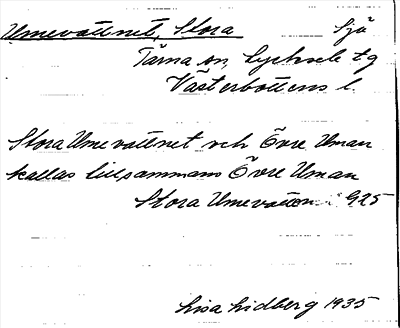 Umevattnet, Stora Sjö
Tärna sn, Lycksele tg
Västerbottens l.
Stora Umevattnet och Övre Uman
kallas tillsammans Övre Uman
Stora Umevattnet 925
Lisa Lidberg 1935